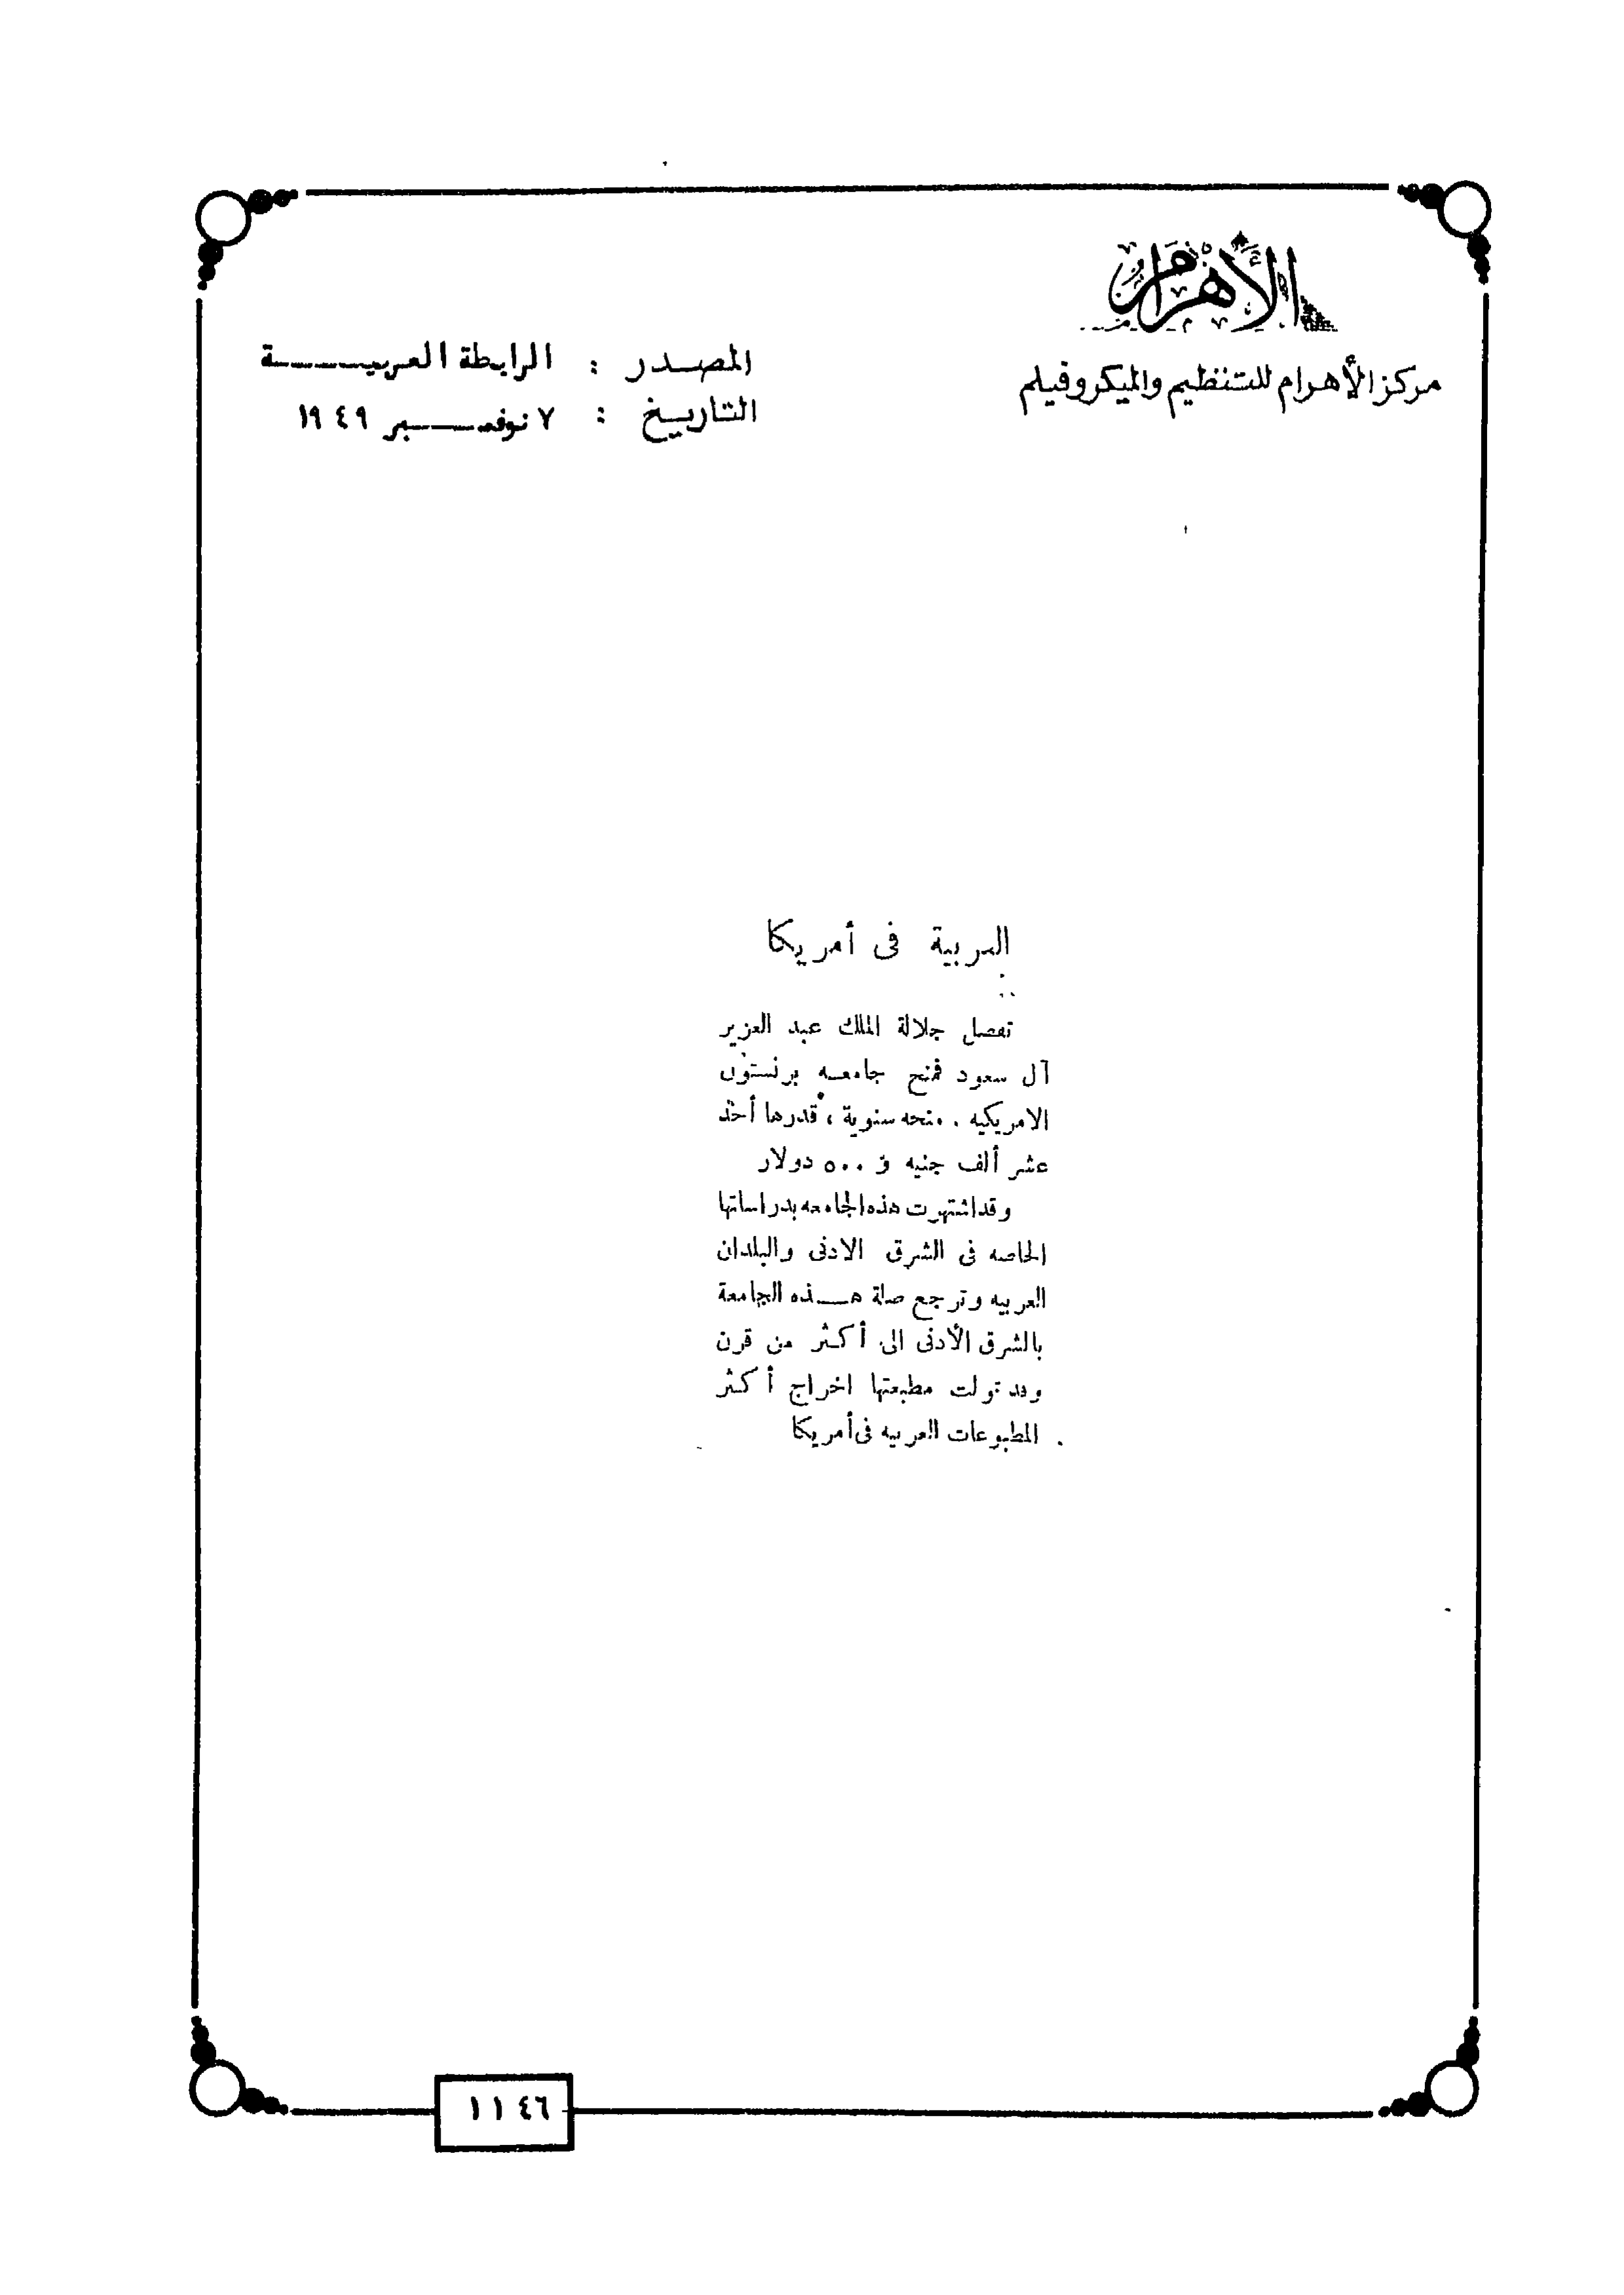 الأهرام
مركز الأهرام للتنظيم والميكروفيلم
المصدر : الرابطة العربية
التاريخ : ٧ نوفمبر ١٩٤٩
العربية فى أمريكا
تفضل جلالة الملك عبد العزيز
آل سعود فمنح جامعه برنستون
الامريكيه . منحه سنوية ، قدرها أحد
عشر ألف جنيه و ٥٠٠ دولار
وقد اشتهرت هذه الجامعه بدراساتها
الخاصه فى الشرق الادنى والبلدان
العربيه وترجع صلة هذه الجامعة
بالشرق الأدنى الى أكثر من قرن
وقد تولت مطبعتها اخراج أكثر
المطبوعات العربيه فى أمريكا
١١٤٦